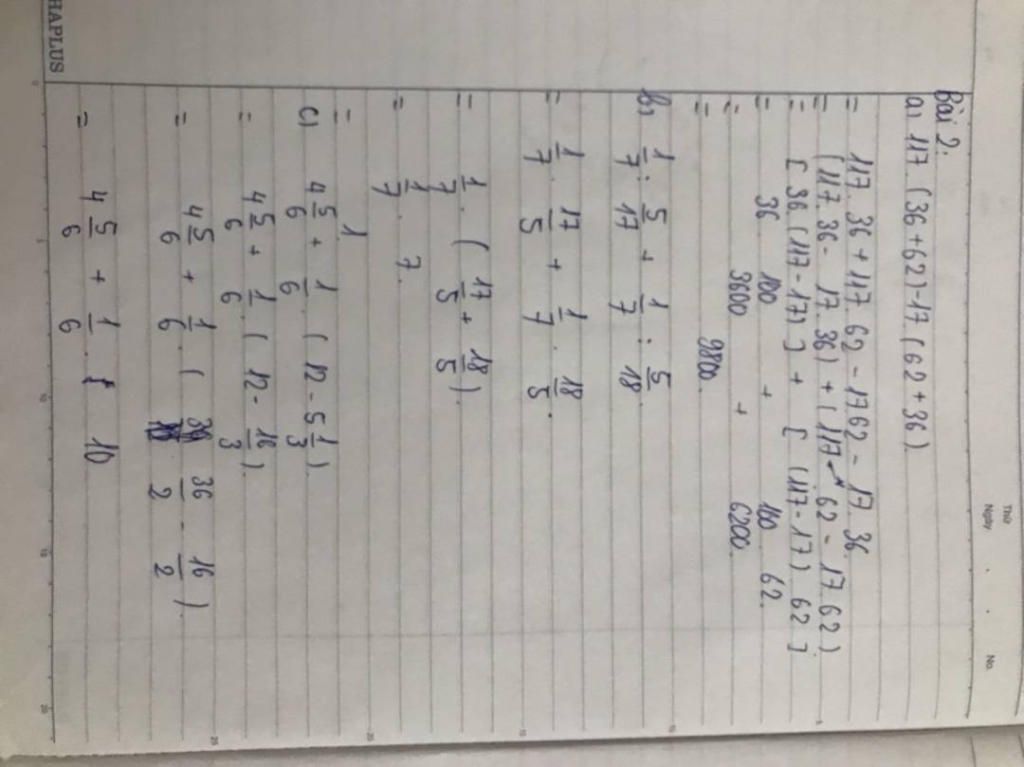 Thứ
Ngày . . No.
Bài 2:
a) 117. (36+62)-17. (62+36)
= 117. 36 + 117. 62 - 17 62 - 17. 36
= (117. 36 - 17. 36) + (117 62 - 17 62)
= [ 36. (117-17) ] + [ (117-17) 62 ]
= 36 100 + 100 62.
= 3600 + 6200
= 9800.
b) 1/7 : 5/17 + 1/7 : 5/18.
= 1/7 . 17/5 + 1/7 . 18/5.
= 1/7 . ( 17/5 + 18/5 ).
= 1/7 . 7.
= 1.
c) 4 5/6 + 1/6 . ( 12 - 5 1/3 ).
= 4 5/6 + 1/6 . ( 12 - 16/3 ).
= 4 5/6 + 1/6 . ( 36/2 - 16/2 ).
= 4 5/6 + 1/6 . 10
HAPLUS
0 5 10 15 20
5 10 15 20 25